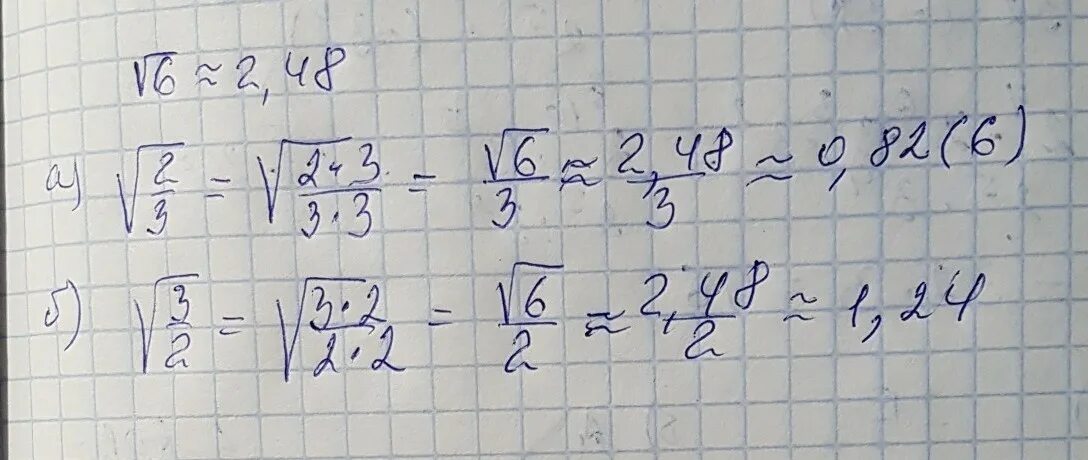 √6 ≈ 2,48
а) √(2/3) = √(2·3/3·3) = √6/3 ≈ 2,48/3 ≈ 0,82(6)
б) √(3/2) = √(3·2/2·2) = √6/2 ≈ 2,48/2 ≈ 1,24